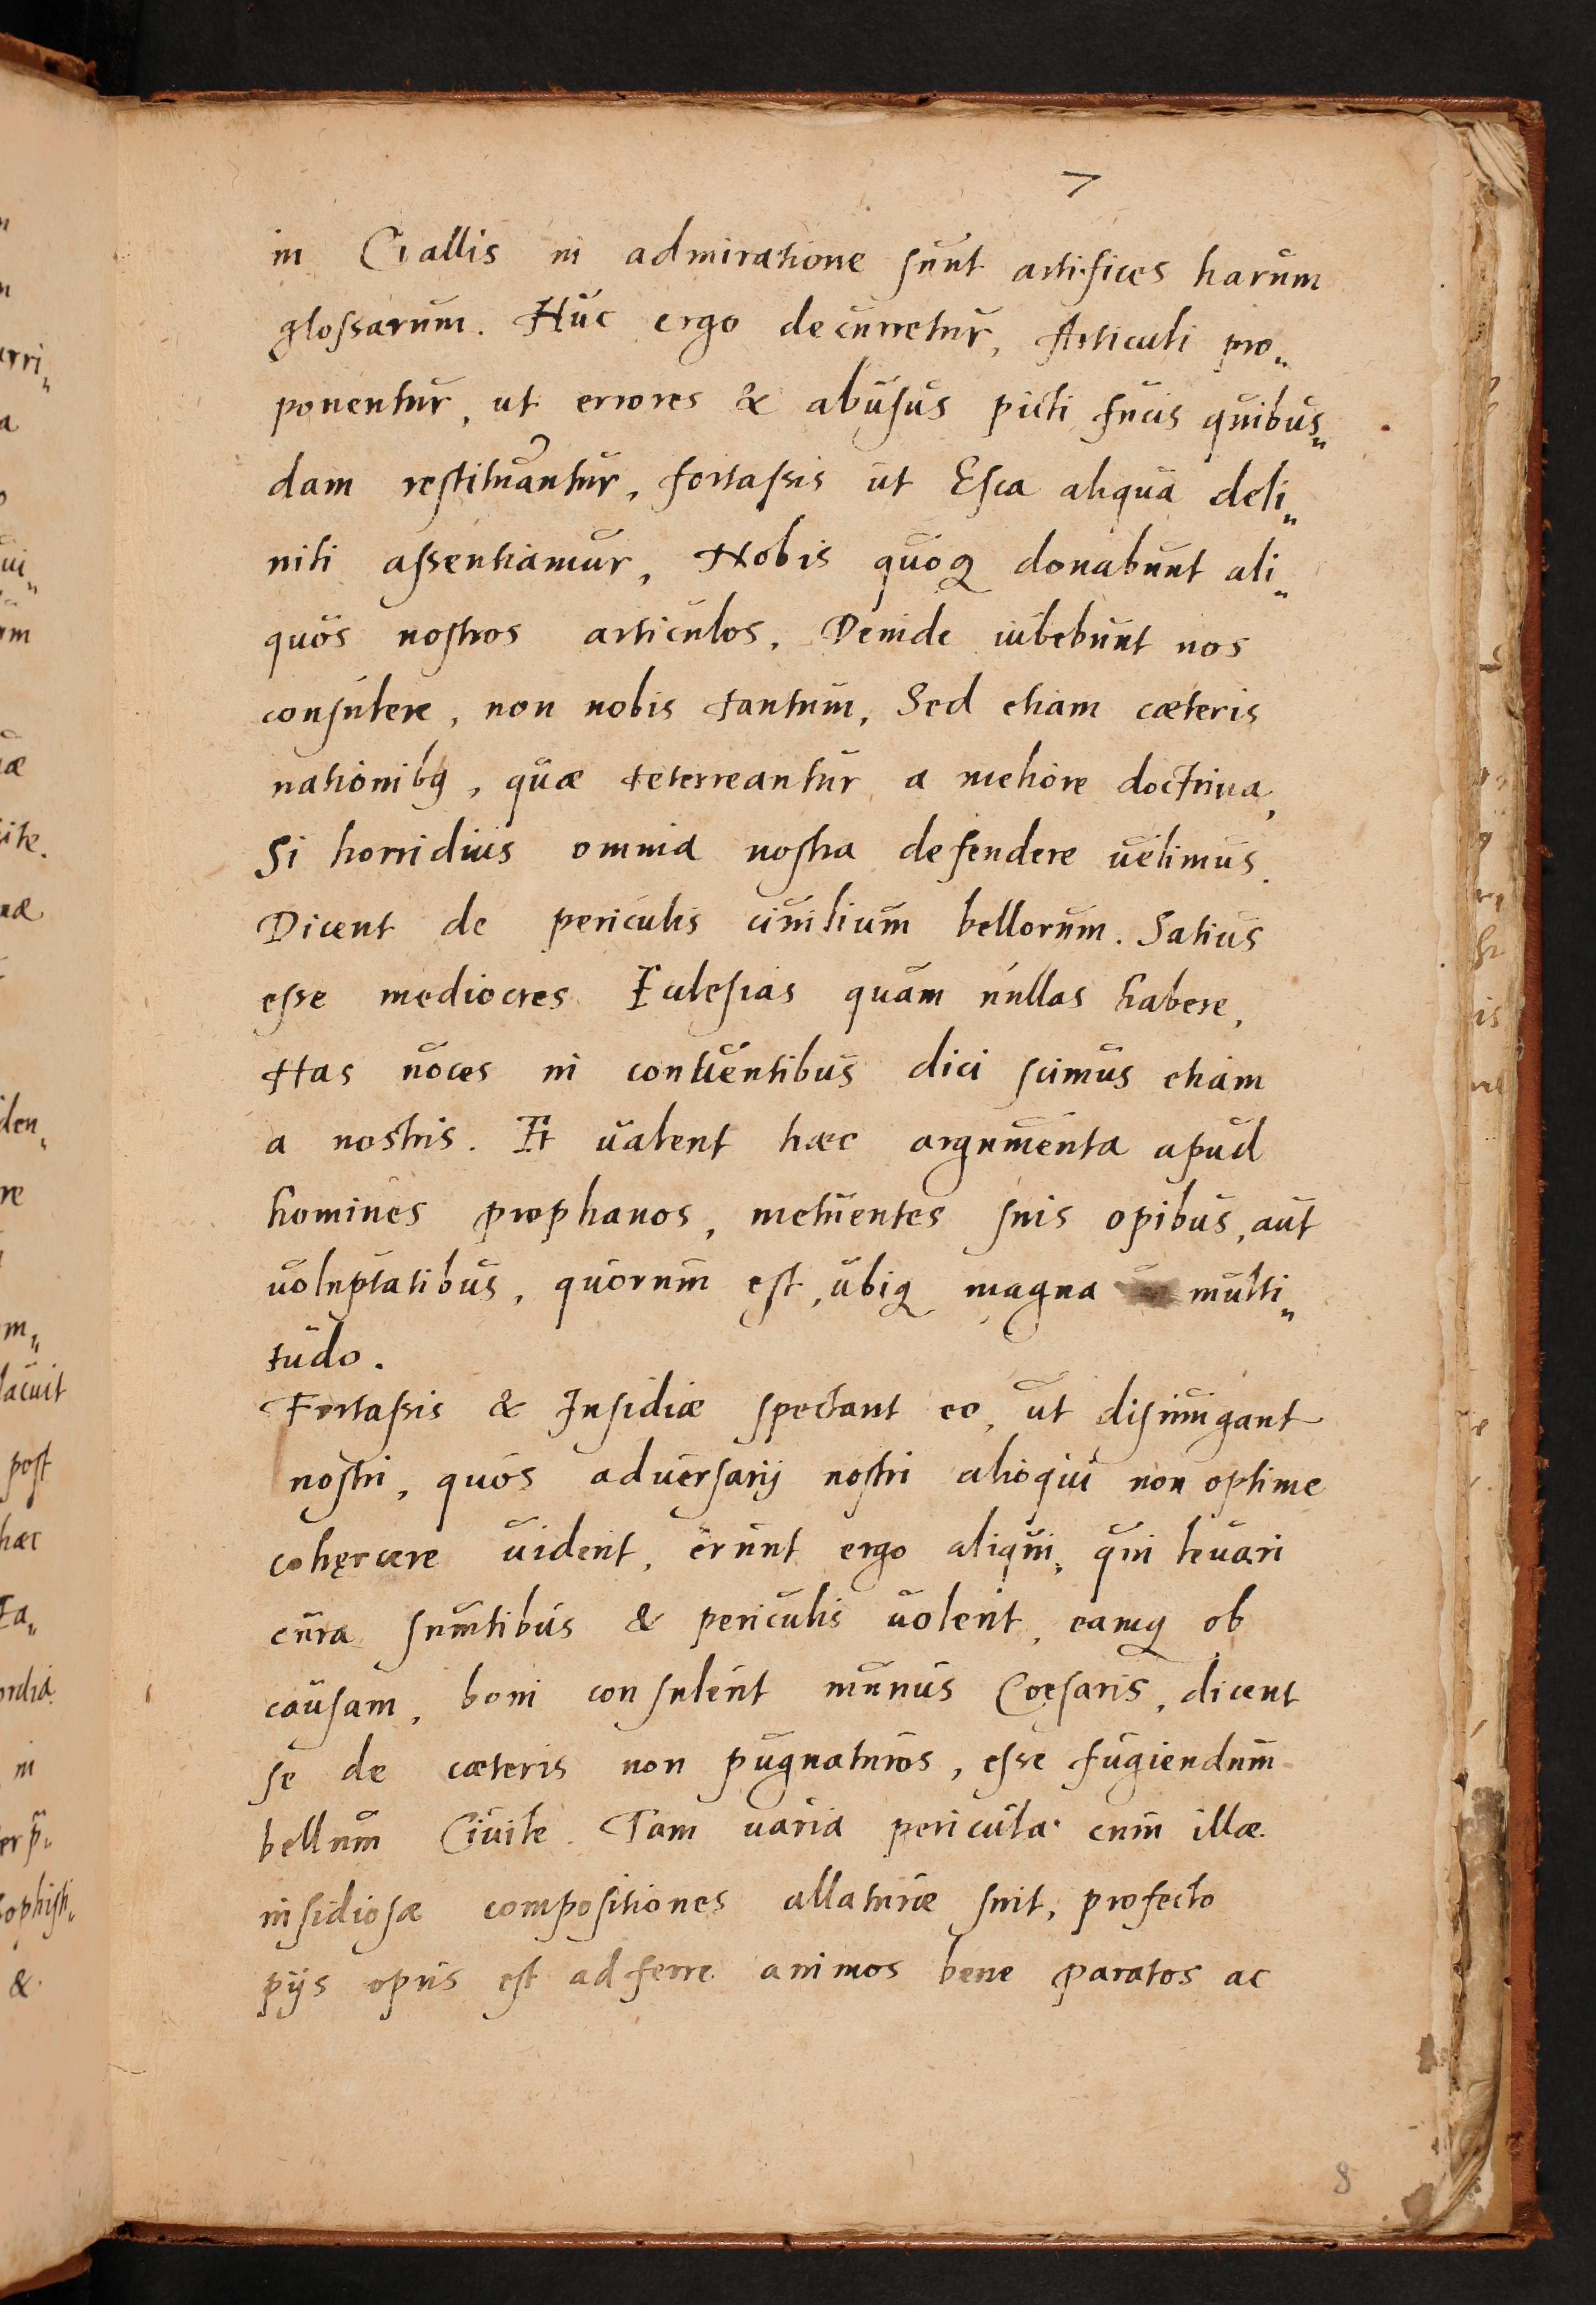 7
in Gallis in admiratione sunt artifices harum
glossarum. Huc ergo decurretur, Articuli pro„
ponentur, ut errores & abusus picti fucis quibus„
dam restituantur, fortassis ut Esca aliqua deli„
niti assentiamur, Nobis quoq donabunt ali„
quos nostros articulos, Deinde iubebunt nos
consulere, non nobis tantum, Sed etiam cæteris
nationibꝫ, quæ deterreantur a meliore doctrina,
Si horridius omnia nostra defendere uelimus.
Dicent de periculis ciuilium bellorum. Satius
esse mediocres Eclesias quam nullas habere,
Has uoces in conuentibus dici scimus etiam
a nostris. Et ualent hæc argumenta apud
homines prophanos, metuentes suis opibus, aut
uoluptatibus, quorum est, ubiq magna multi„
tudo.
Fortassis & Insidiæ spectant eo, ut disiungant
nostri, quos aduersarij nostri alioqui non optime
cohęrcere uident, erunt ergo aliqui, qui leuari
cura sumtibus & periculis uolent, eamq ob
causam, boni consulent munus Cæsaris, dicent
se de cæteris non pugnaturos, esse fugiendum
bellum Ciuile. Tam uaria pericula cum illæ
insidiosæ compositiones allaturæ sint, profecto
pijs opus est adferre animos bene paratos ac
8